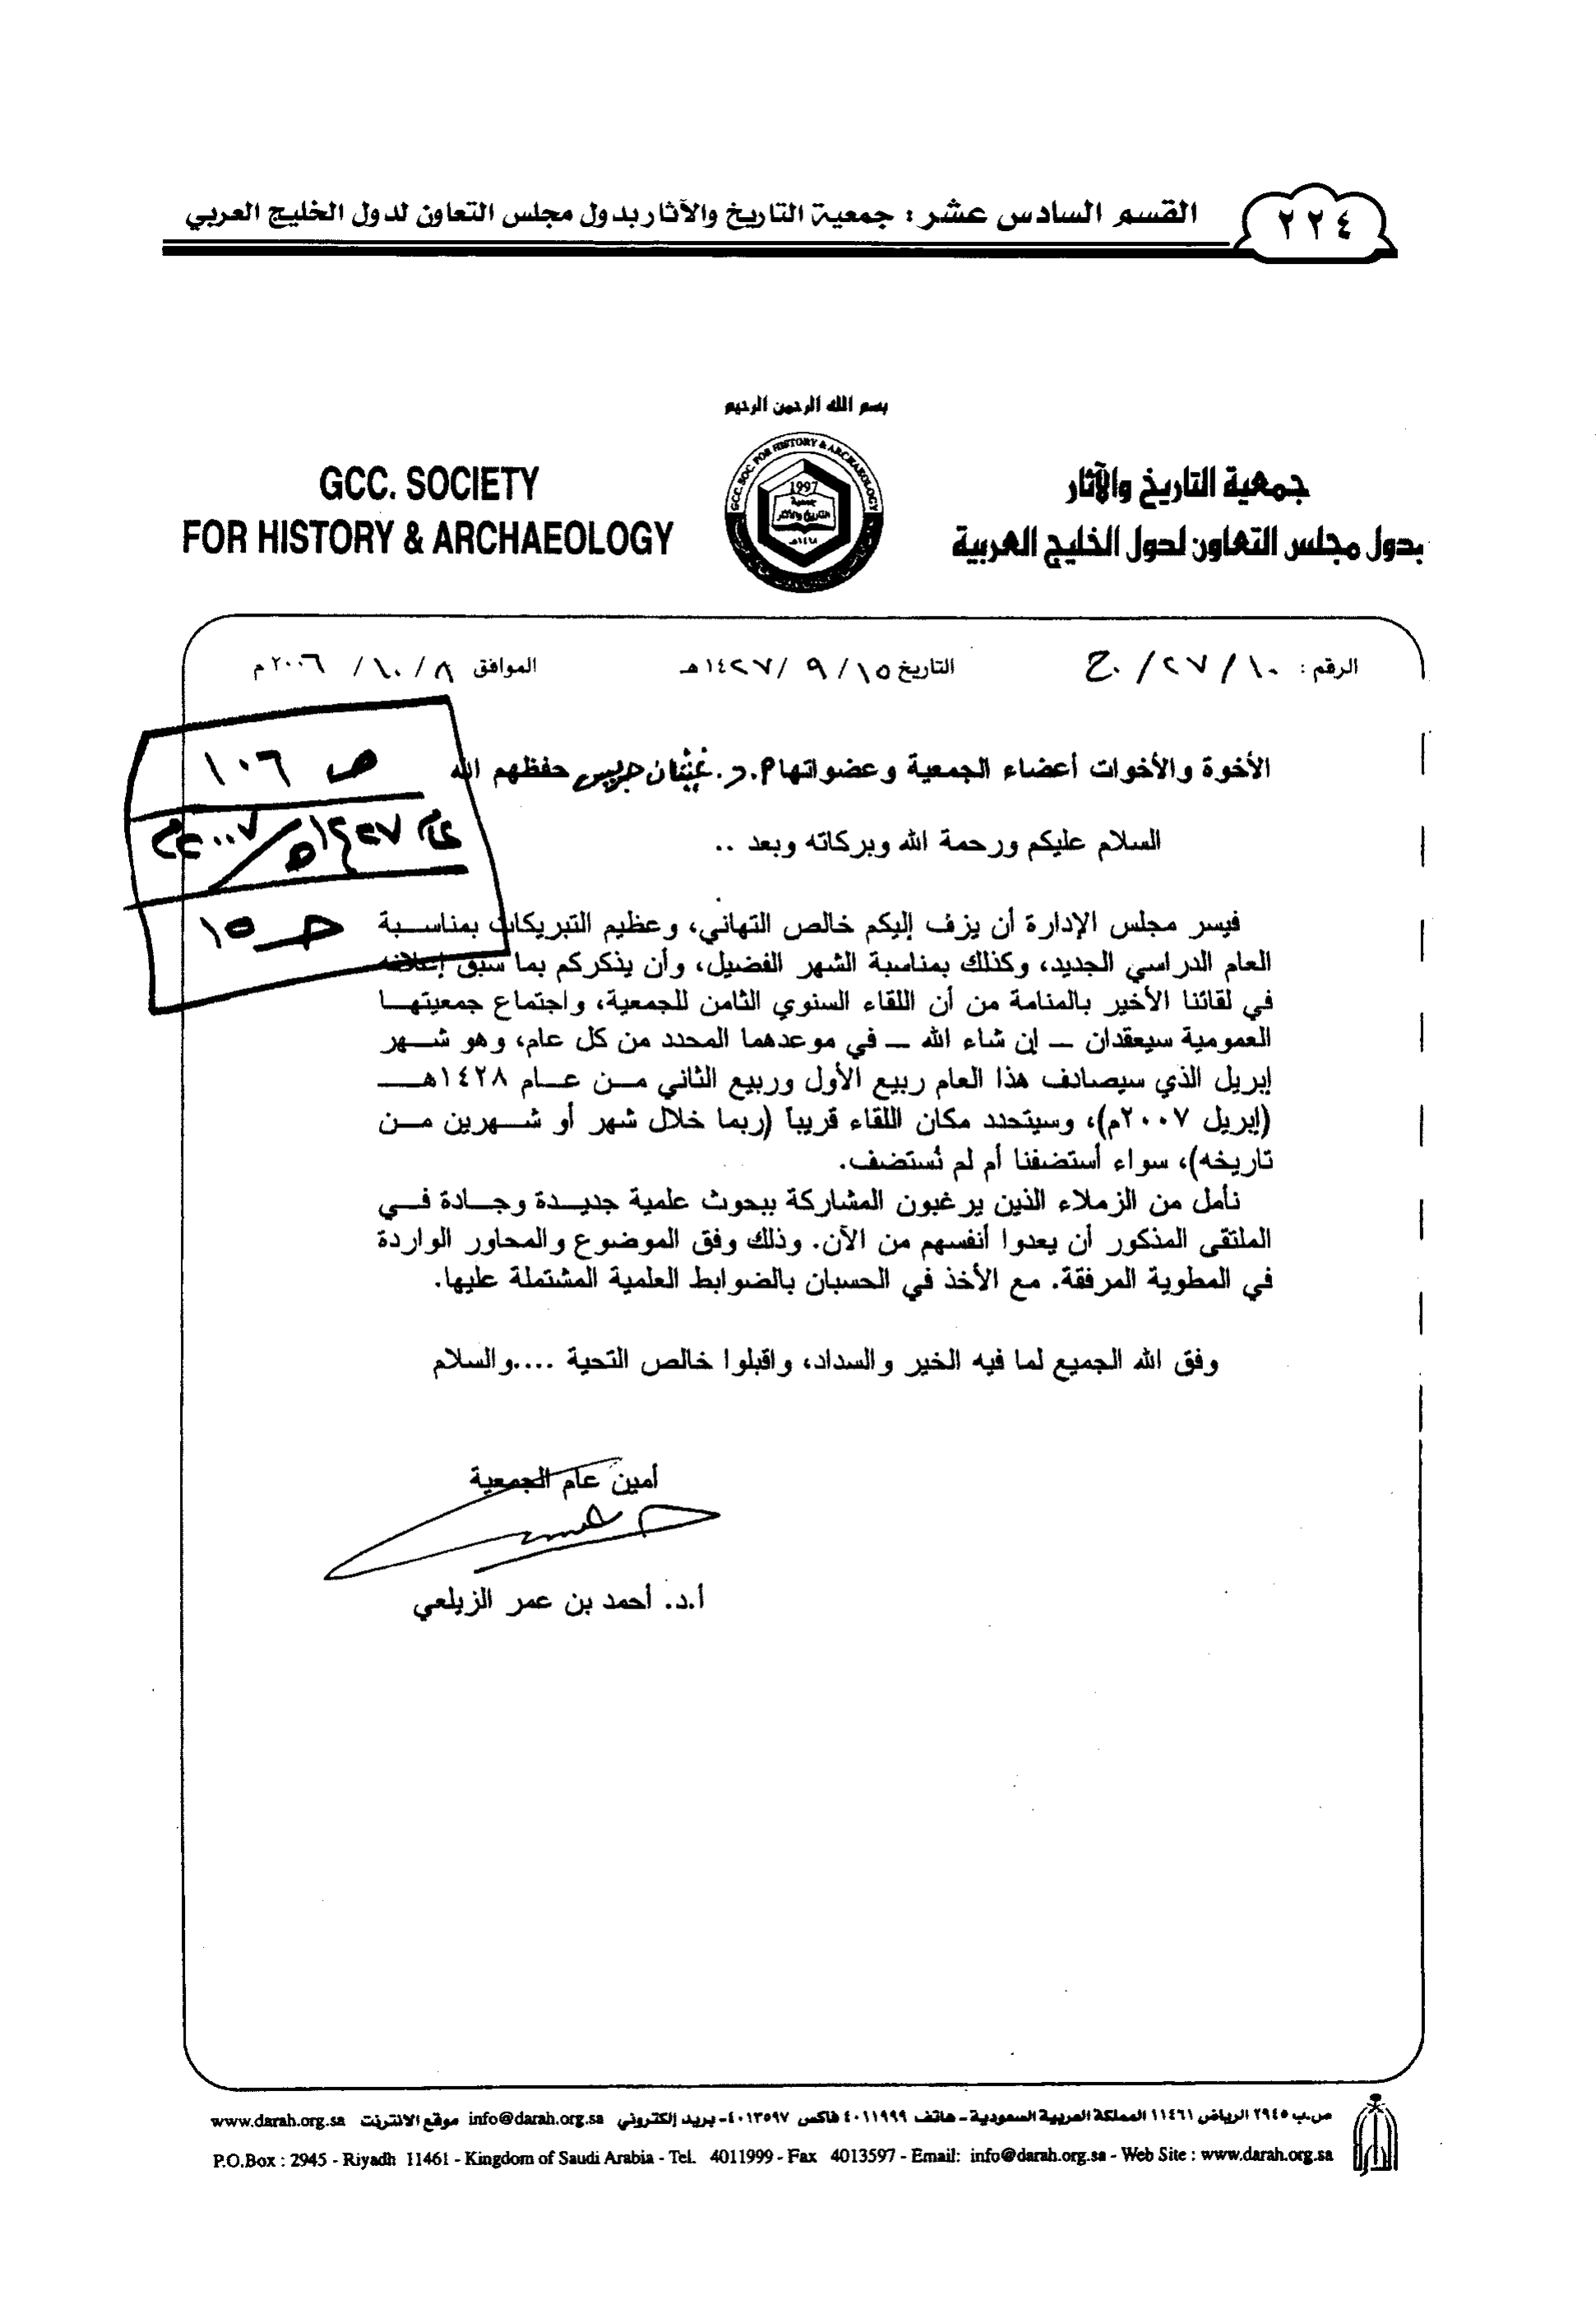 ٢٢٤
القسم السادس عشر : جمعية التاريخ والآثار بدول مجلس التعاون لدول الخليج العربي
بسم الله الرحمن الرحيم
جمعية التاريخ والآثار
بدول مجلس التعاون لدول الخليج العربية
GCC. SOCIETY
FOR HISTORY & ARCHAEOLOGY
GCC. SOC. FOR HISTORY & ARCHAEOLOGY
1997
جمعية
التاريخ والآثار
١٤١٨هـ
الرقم : ١٠ / ٢٧ / ج٠ التاريخ ١٥ / ٩ / ١٤٢٧هـ الموافق ٨ / ١٠ / ٢٠٠٦ م
ص ١٠٦
عام ١٤٢٧هـ / ٢٠٠٧م
جـ ١٥
الأخوة والأخوات أعضاء الجمعية وعضواتها أ.د. غيثان جريس حفظهم الله
السلام عليكم ورحمة الله وبركاته وبعد ..
فيسر مجلس الإدارة أن يزف إليكم خالص التهاني، وعظيم التبريكات بمناسبة
العام الدراسي الجديد، وكذلك بمناسبة الشهر الفضيل، وأن يذكركم بما سبق إعلانه
في لقائنا الأخير بالمنامة من أن اللقاء السنوي الثامن للجمعية، واجتماع جمعيتها
العمومية سيعقدان – إن شاء الله – في موعدهما المحدد من كل عام، وهو شهر
إبريل الذي سيصادف هذا العام ربيع الأول وربيع الثاني من عام ١٤٢٨هـ
(إبريل ٢٠٠٧م)، وسيتحدد مكان اللقاء قريباً (ربما خلال شهر أو شهرين من
تاريخه)، سواء أستضفنا أم لم نُستضف.
نأمل من الزملاء الذين يرغبون المشاركة ببحوث علمية جديدة وجادة في
الملتقى المذكور أن يعدوا أنفسهم من الآن. وذلك وفق الموضوع والمحاور الواردة
في المطوية المرفقة. مع الأخذ في الحسبان بالضوابط العلمية المشتملة عليها.
وفق الله الجميع لما فيه الخير والسداد، واقبلوا خالص التحية ....والسلام
أمين عام الجمعية
أ.د. أحمد بن عمر الزيلعي
ص.ب ٢٩٤٥ الرياض ١١٤٦١ المملكة العربية السعودية - هاتف ٤٠١١٩٩٩ فاكس ٤٠١٣٥٩٧ - بريد إلكتروني info@darah.org.sa موقع الانترنت www.darah.org.sa
P.O.Box : 2945 - Riyadh 11461 - Kingdom of Saudi Arabia - Tel. 4011999 - Fax 4013597 - Email: info@darah.org.sa - Web Site : www.darah.org.sa